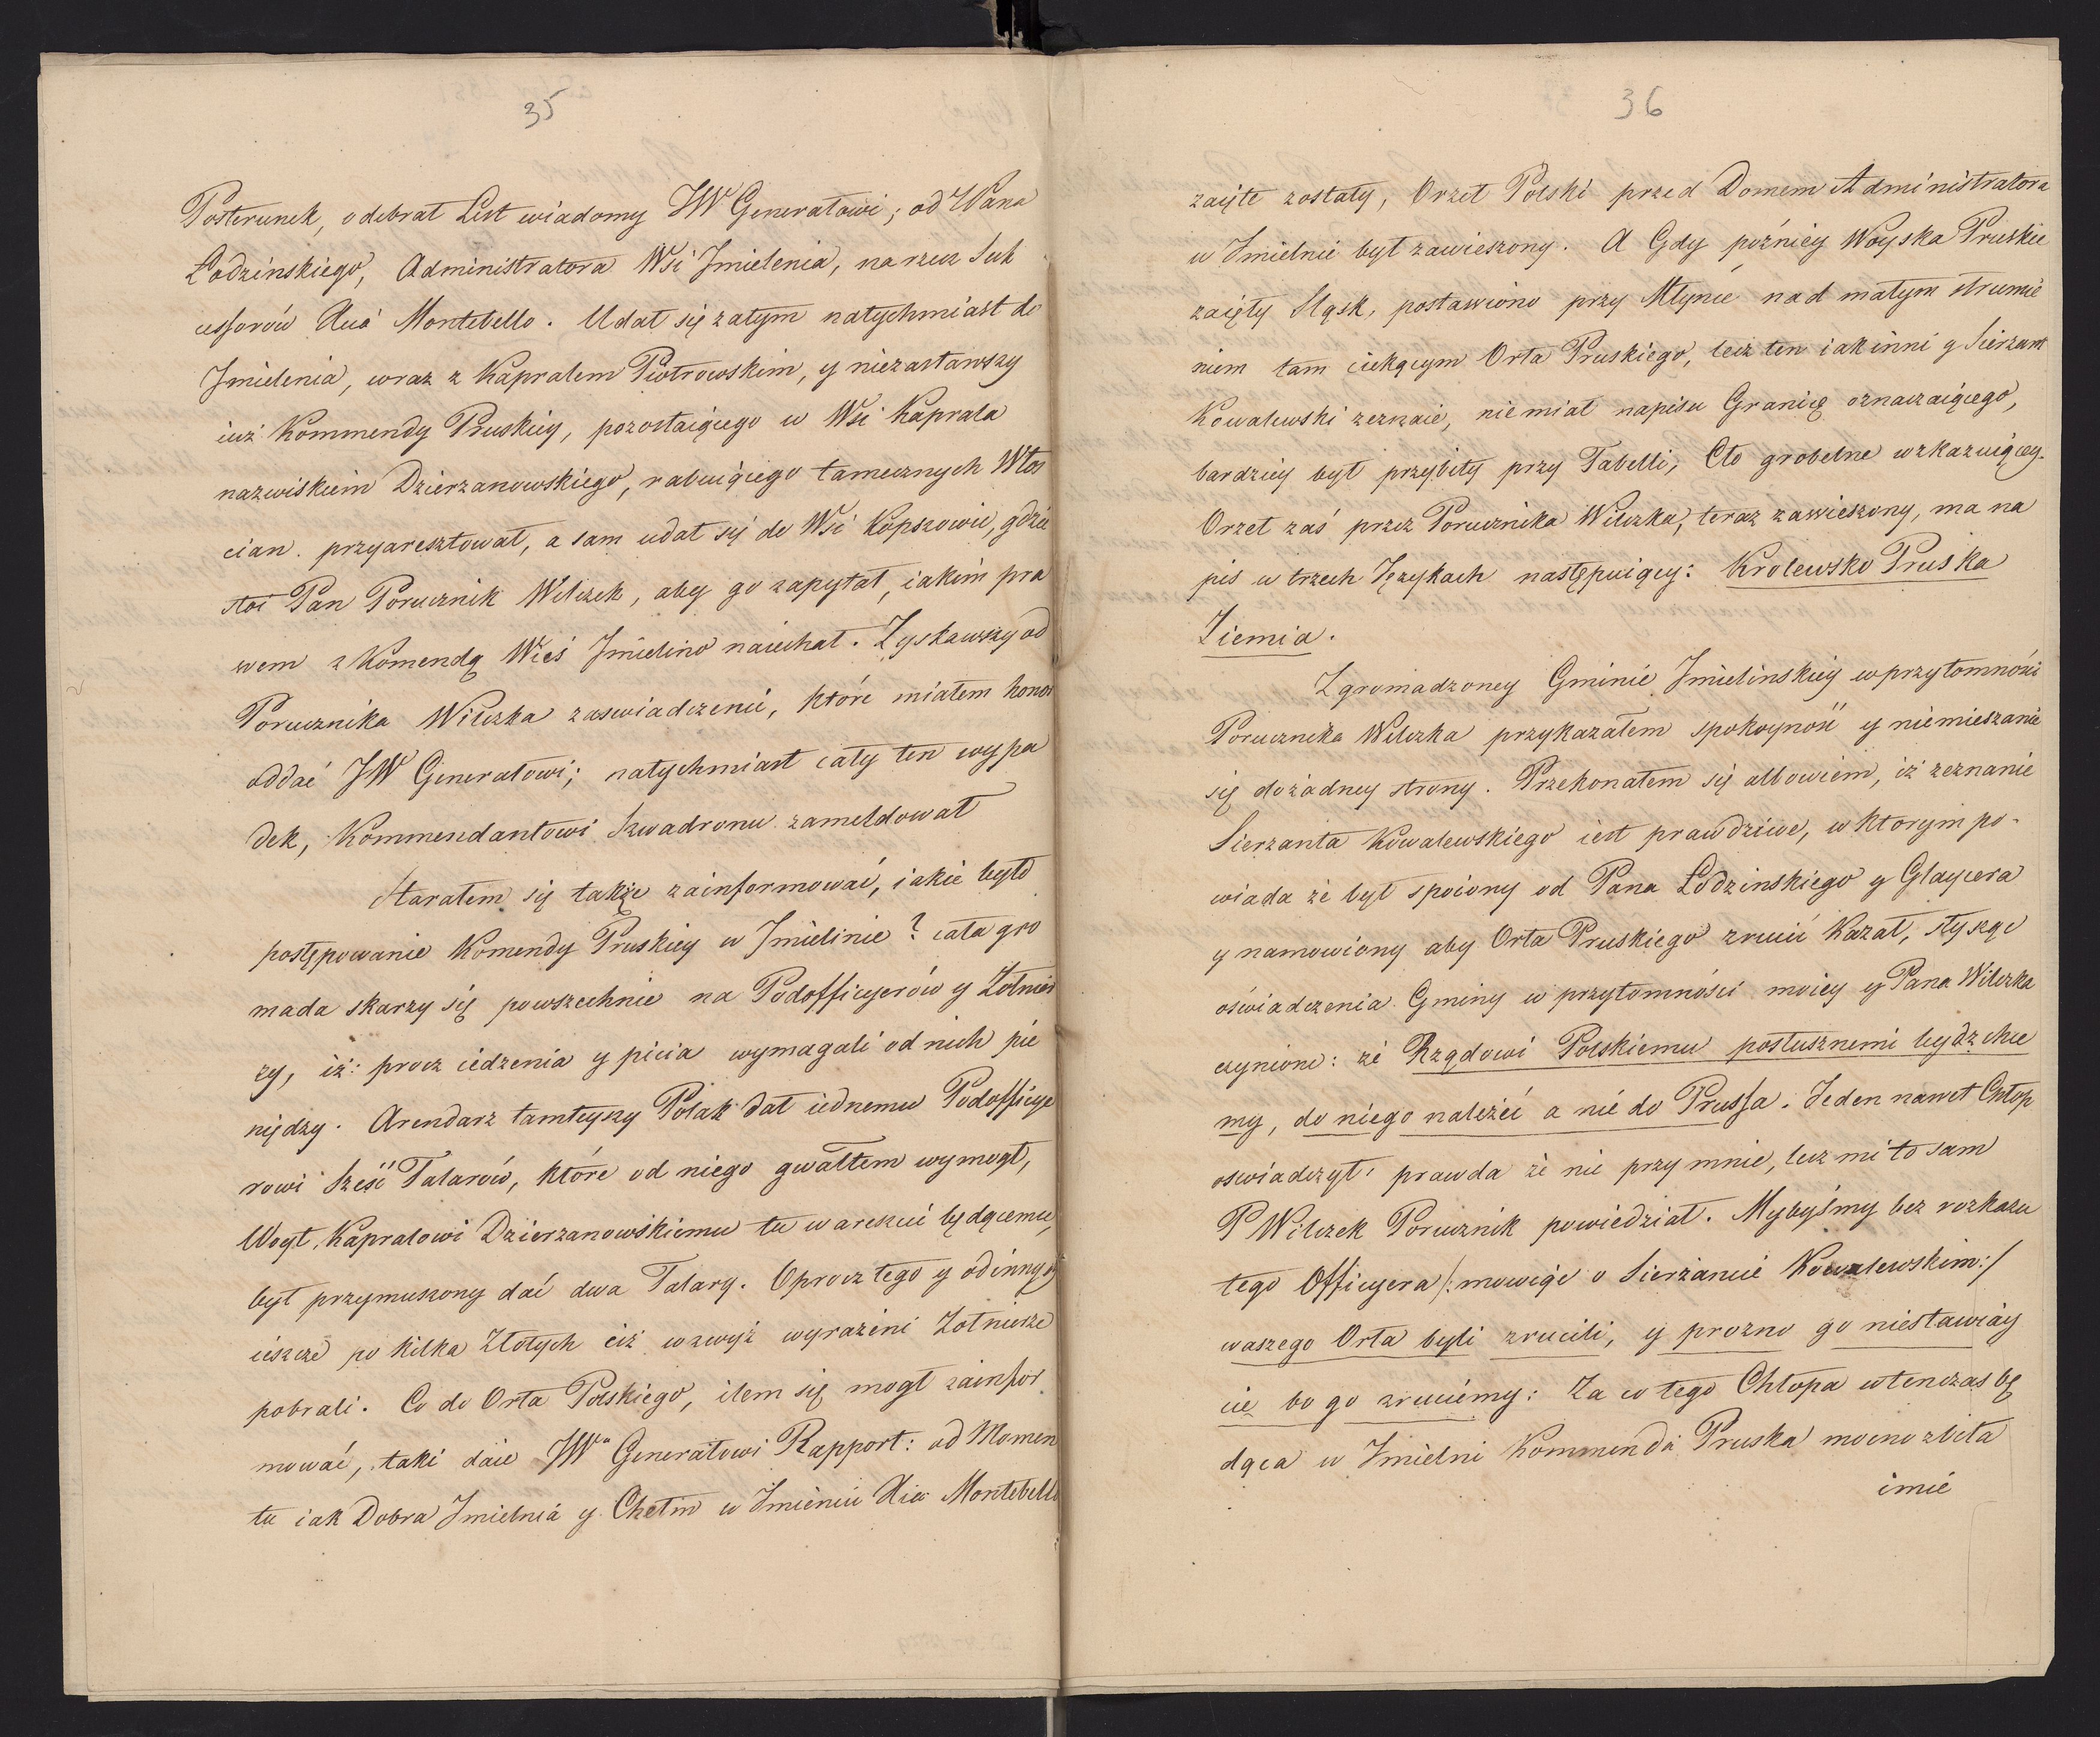 35
Posterunek, odebrał List wiadomy JW Generałowi; od WPana
Łodzinskiego, Administratora Wsi Jmielenia, na rzecz Suk
cessorów Xcia Montebello. Udał się zatym natychmiast do
Jmielenia, wraz z Kapralem Piotrowskim, y niezastawszy
iuż Kommendy Pruskiey, pozostaiącego w Wsi Kaprala
nazwiskiem Dzierzanowskiego, rabuiącego tamecznych Włos
cian. przyaresztował, a sam udał się do Wsi Kopszowic, gdzie
stoi Pan Porucznik Wilczek, aby go zapytał, iakim pra
wem z Komendą Wieś Jmielino naiechał. Zyskawszy od
Porucznika Wilczka zaswiadczenie, które miałem honor
oddać JW Generałowi; natychmiast cały ten wypa
dek, Kommendantowi Szwadronu zameldował
Starałem się także zainformować, iakie było
postępowanie Komendy Pruskiey w Jmielinie? cała gro
mada skarzy się powszechnie na Podofficyerów y Zołnier
zy, iż: procz iedzenia y picia wymagali od nich pie
niędzy. Arendarz tamteyszy Polak dał iednemu Podofficye
rowi Sześć Talarów, które od niego gwałtem wymogł,
Woyt, Kapralowi Dzierzanowskiemu tu w areszcie będącemu,
był przymuszony dać dwa Talary. Oprocz tego y od innych
ieszcze po kilka Złotych ciż wzwyż wyrażeni Zołnierze
pobrali. Co do Orła Polskiego, ilem się mogł zainfor
mować, taki daie JWu Generałowi Rapport: od Momen
tu iak Dobra Jmielnia y Chełm w Jmieniu Xia Montebello
36
zaięte zostały, Orzeł Polski przed Domem Administratora
w Jmielnie był zawieszony. A Gdy pożniey Woyska Pruskie
zaięły Sląsk, postawiono przy Młynie nad małym strumie
niem tam ciekącym Orła Pruskiego, lecz ten iak inni y Sierzant
Kowalewski zeznaie, nie miał napisu Granicę oznaczaiącego,
bardziey był przybity przy Tabelli, Cło grobelne wzkazuiącey.
Orzeł zaś przez Porucznika Wilczka, teraz zawieszony, ma na
pis w trzech Językach następuiący: Krolewsko Pruska
Ziemia.
Zgromadzoney Gminie Jmielinskiey w przytomności
Porucznika Wilczka przykazałem spokoyność y niemieszanie
się do żadney strony. Przekonałem się albowiem, iż zeznanie
Sierzanta Kowalewskiego iest prawdziwe, w ktorym po-
wiada że był spoiony od Pana Łodzinskiego y Glaycera
y namowiony aby Orła Pruskiego zrucić Kazał, słysząc
oświadczenia Gminy w przytomności moiey y Pana Wilczka
czynione: że Rządowi Polskiemu posłusznemi bydź chce
my, do niego należeć a nie do Prussa. Jeden nawet Chłop
oswiadczył, prawda że nie przy mnie, lecz mi to sam
P Wilczek Porucznik powiedział. Mybyśmy bez rozkazu
tego Officyera /: mowiąc o Sierżancie Kowalewskim :/
waszego Orła byli zrucili, y prozno go niestawiay
cie bo go zrucimy: Za co tego Chłopa wtenczas bę
dąca w Jmielni Kommenda Pruska mocno zbiła
imie